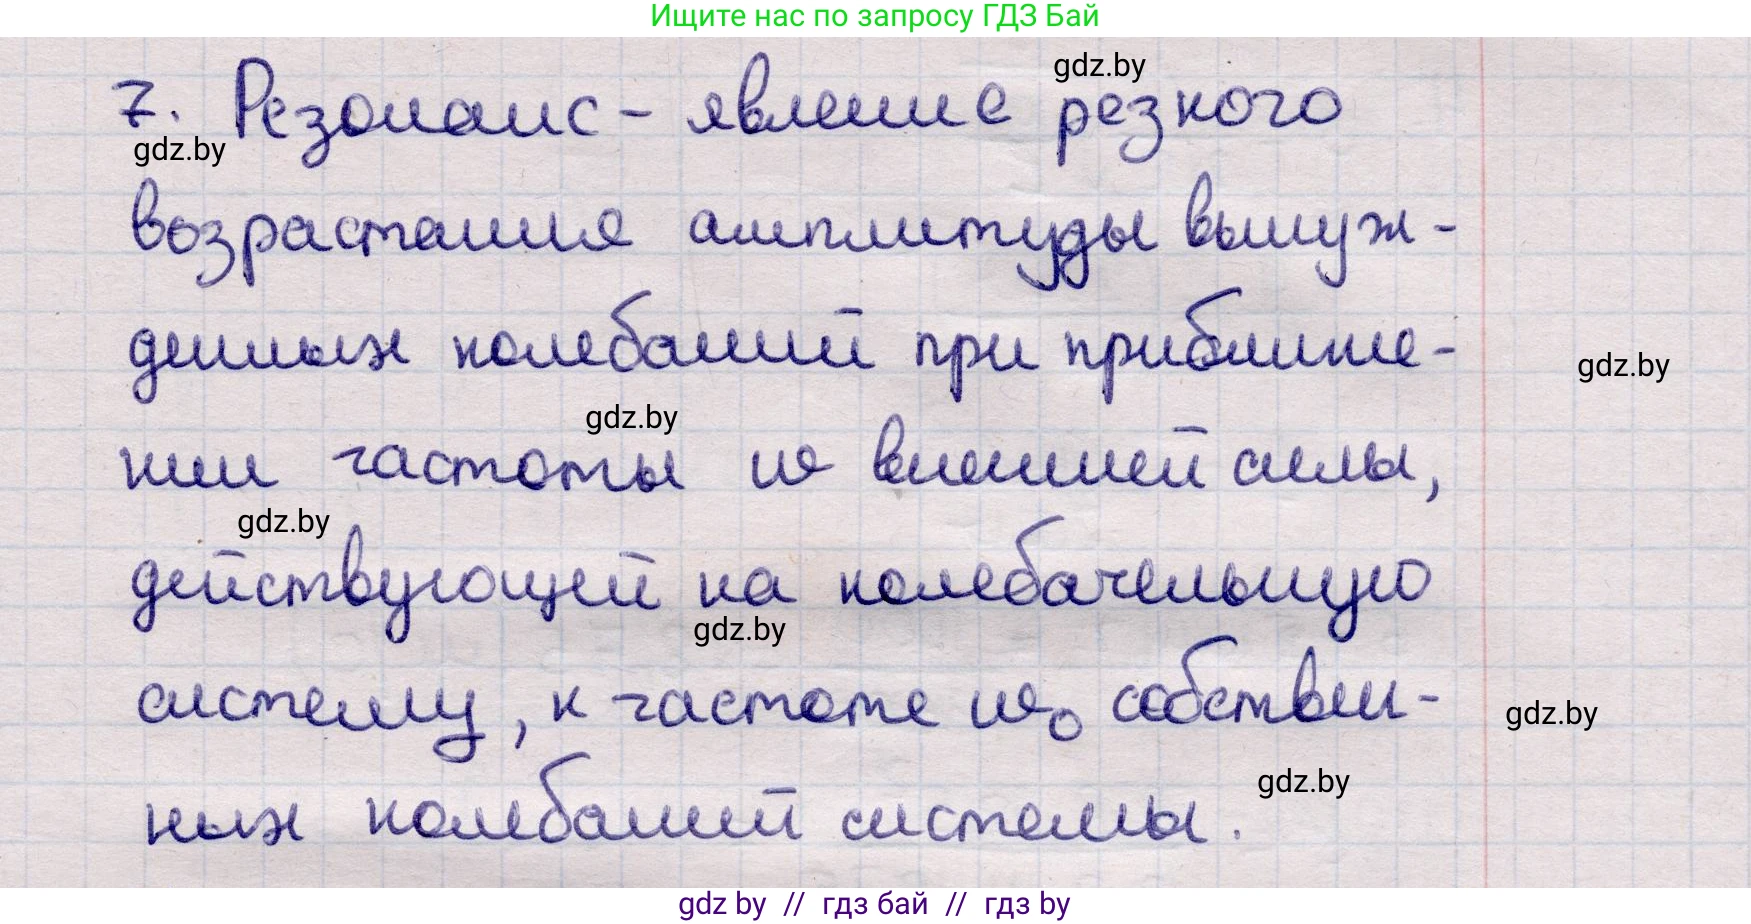 Ищите нас по запросу ГДЗ Бай
gdz.by
7. Резонанс - явление резкого
gdz.by
возрастания амплитуды вынуж-
денных колебаний при приближе-
gdz.by
gdz.by
нии частоты ω внешней силы,
gdz.by
действующей на колебательную
gdz.by
систему, к частоте ω₀ собствен-
gdz.by
gdz.by
ных колебаний системы.
gdz by // гдз бай // гдз by